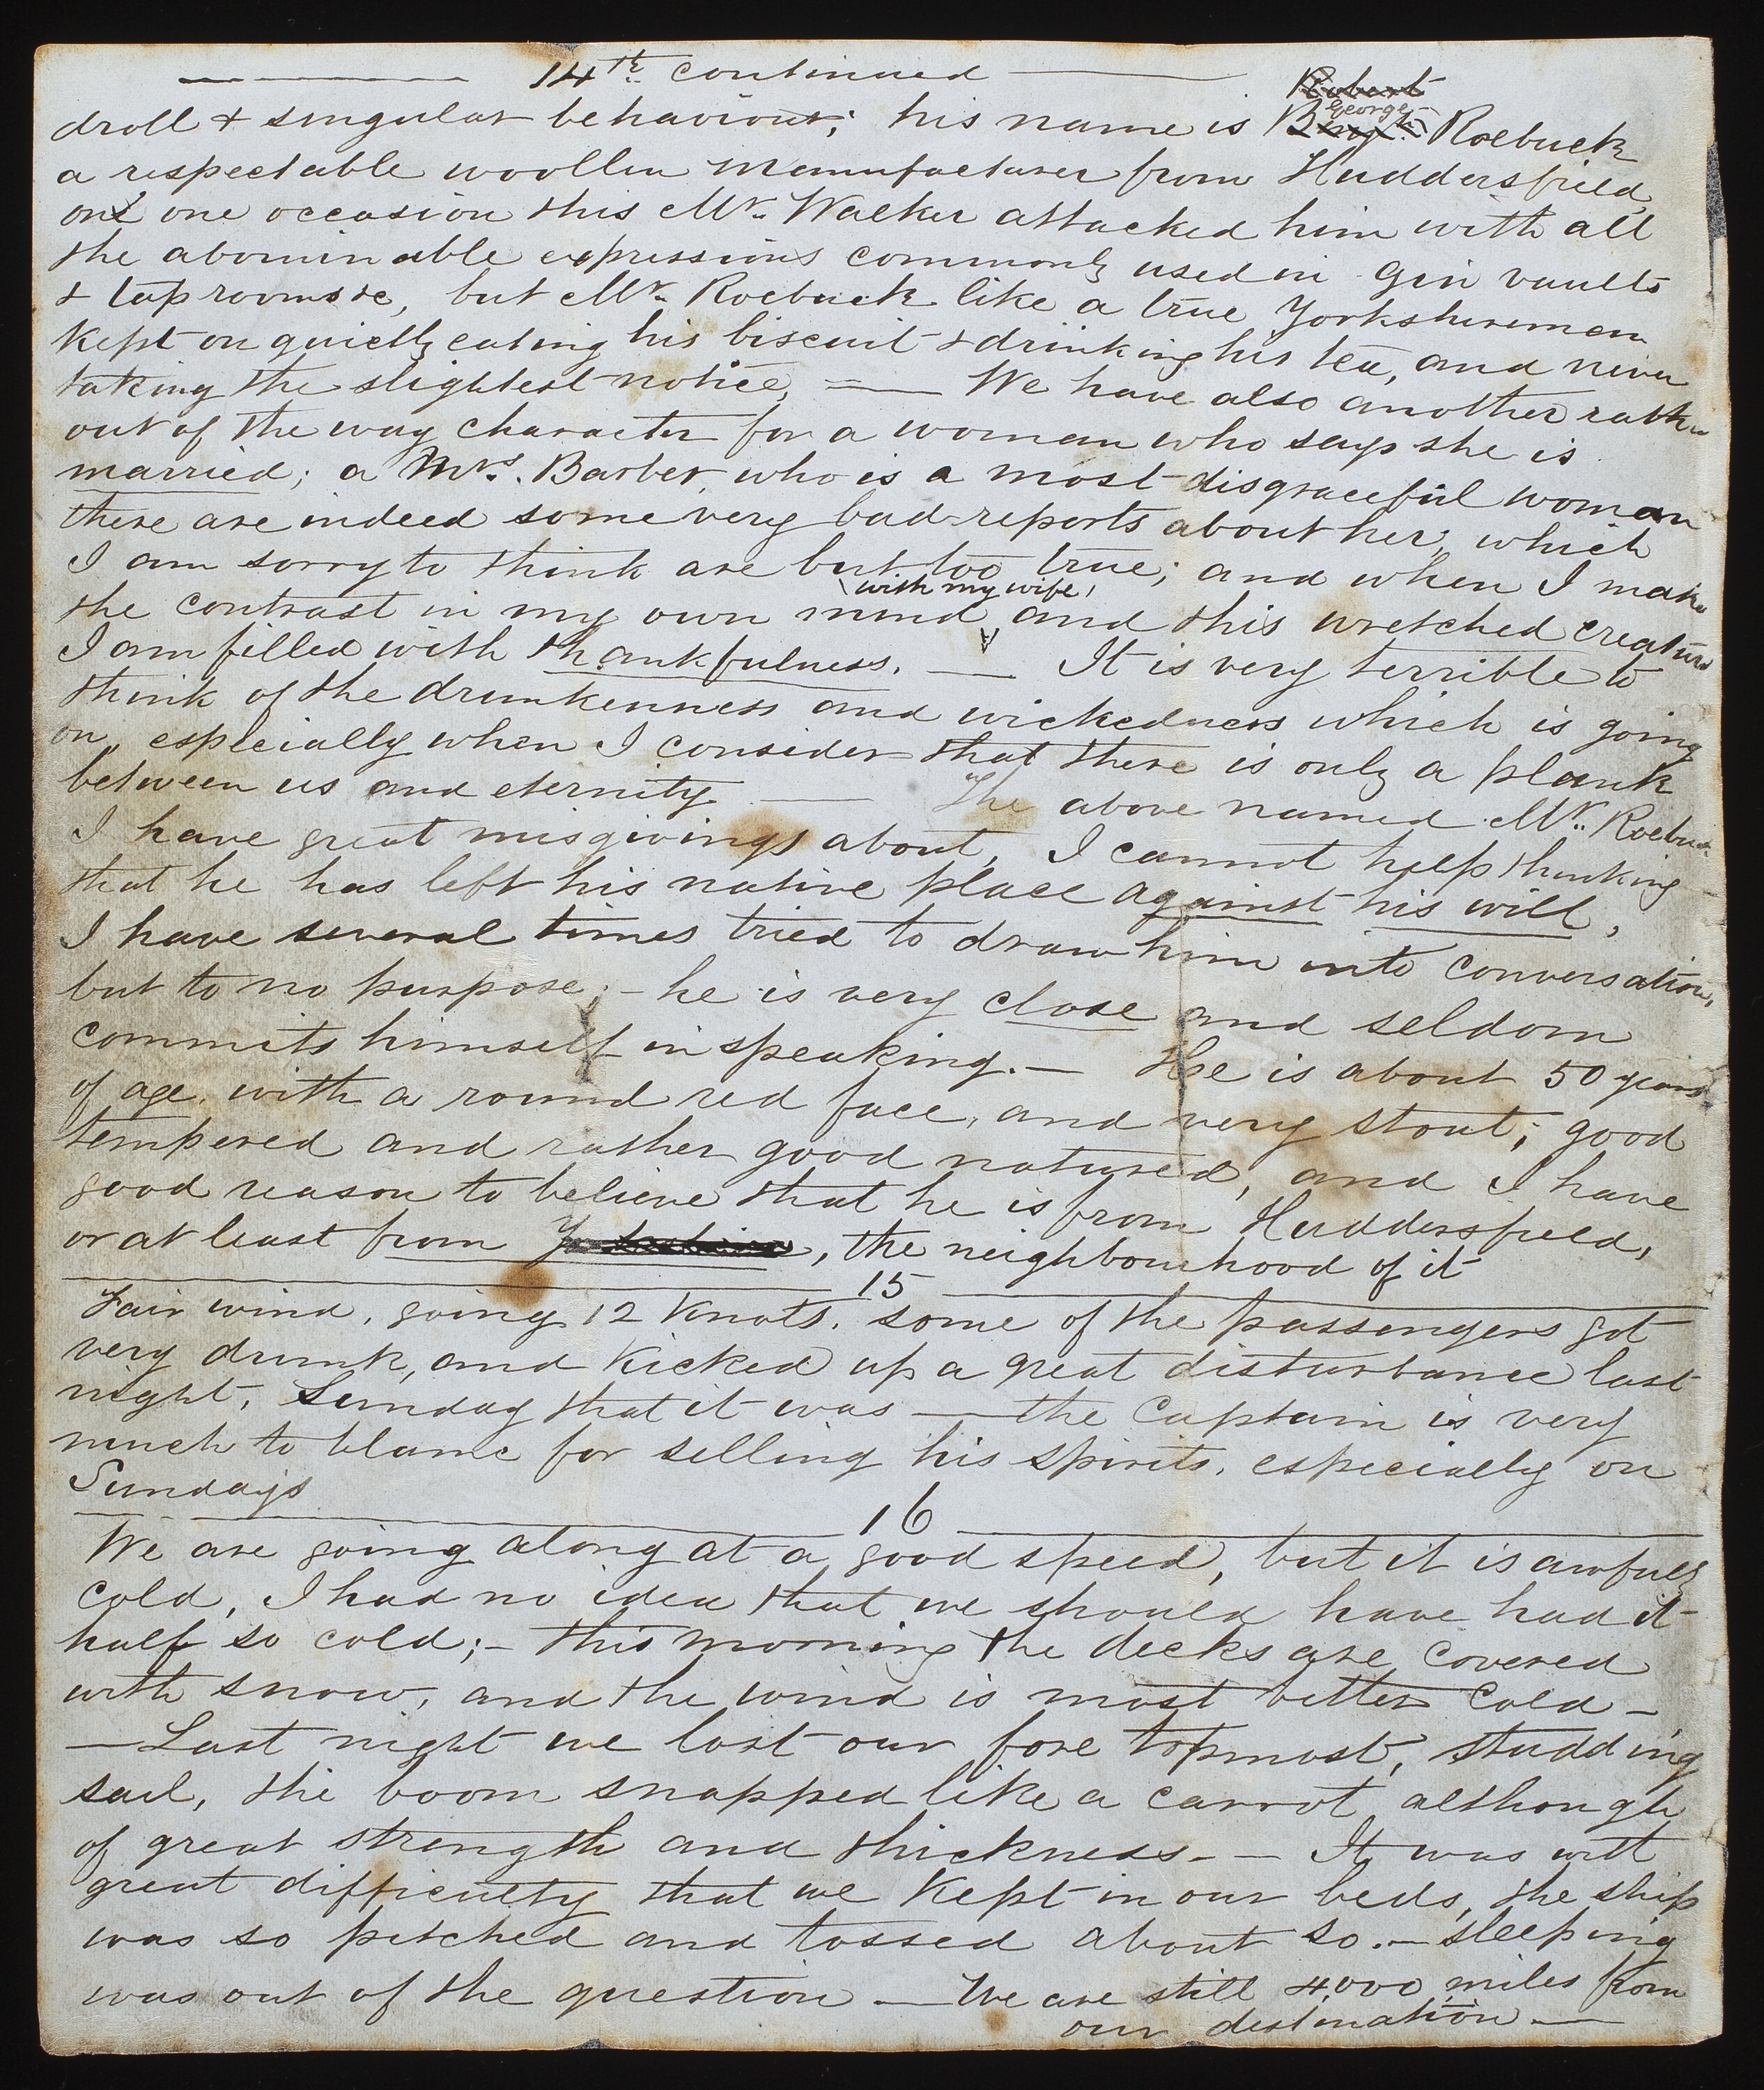 14th. continued
droll & singular behaviour; his name is Robert Benjn. George Roebuck
a respectable woollen manufacturer from Huddersfield,
on one occasion this Mr. Walker attacked him with all
the abominable expressions commonly used in gin vaults
& taprooms &c, but Mr. Roebuck like a true Yorkshireman
kept on quietly eating his biscuit & drinking his tea, and never
taking the slightest notice, — We have also another rather
out of the way character for a woman who says she is
married; a Mrs. Barber, who is a most disgraceful woman
there are indeed some very bad reports about her, which
I am sorry to think are but too true; and when I make
the contrast in my own mind with my wife, and this wretched creature
I am filled with thankfulness. — It is very terrible to
think of the drunkenness and wickedness which is going
on, especially when I consider that there is only a plank
between us and eternity — The above named Mr. Roebuck
I have great misgivings about, I cannot help thinking
that he has left his native place against his will,
I have several times tried to draw him into conversation,
but to no purpose; - he is very close and seldom
commits himself in speaking. — He is about 50 years
of age, with a round red face, and very stout; good
tempered and rather good natured, and I have
good reason to believe that he is from Huddersfield,
or at least from Yorkshire, the neighbourhood of it
15
Fair wind, going 12 Knots, some of the passengers got
very drunk, and Kicked up a great disturbance last
night, Sunday that it was — the Captain is very
much to blame for selling his spirits, especially on
Sundays
16
We are going along at a good speed, but it is awfully
cold, I had no idea that we should have had it
half so cold; - this morning the decks are covered
with snow, and the wind is most bitter cold -
— Last night we lost our fore topmast, studding
sail, the boom snapped like a carrot although
of great strength and thickness - — It was with
great difficulty that we Kept in our beds, the ship
was so pitched and tossed about so. — sleeping
was out of the question — We are still 4,000 miles from
our destination —